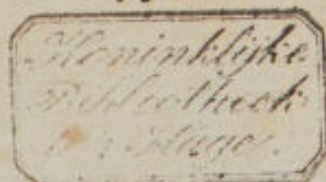 Koninklijke
Bibliotheek
Hage.